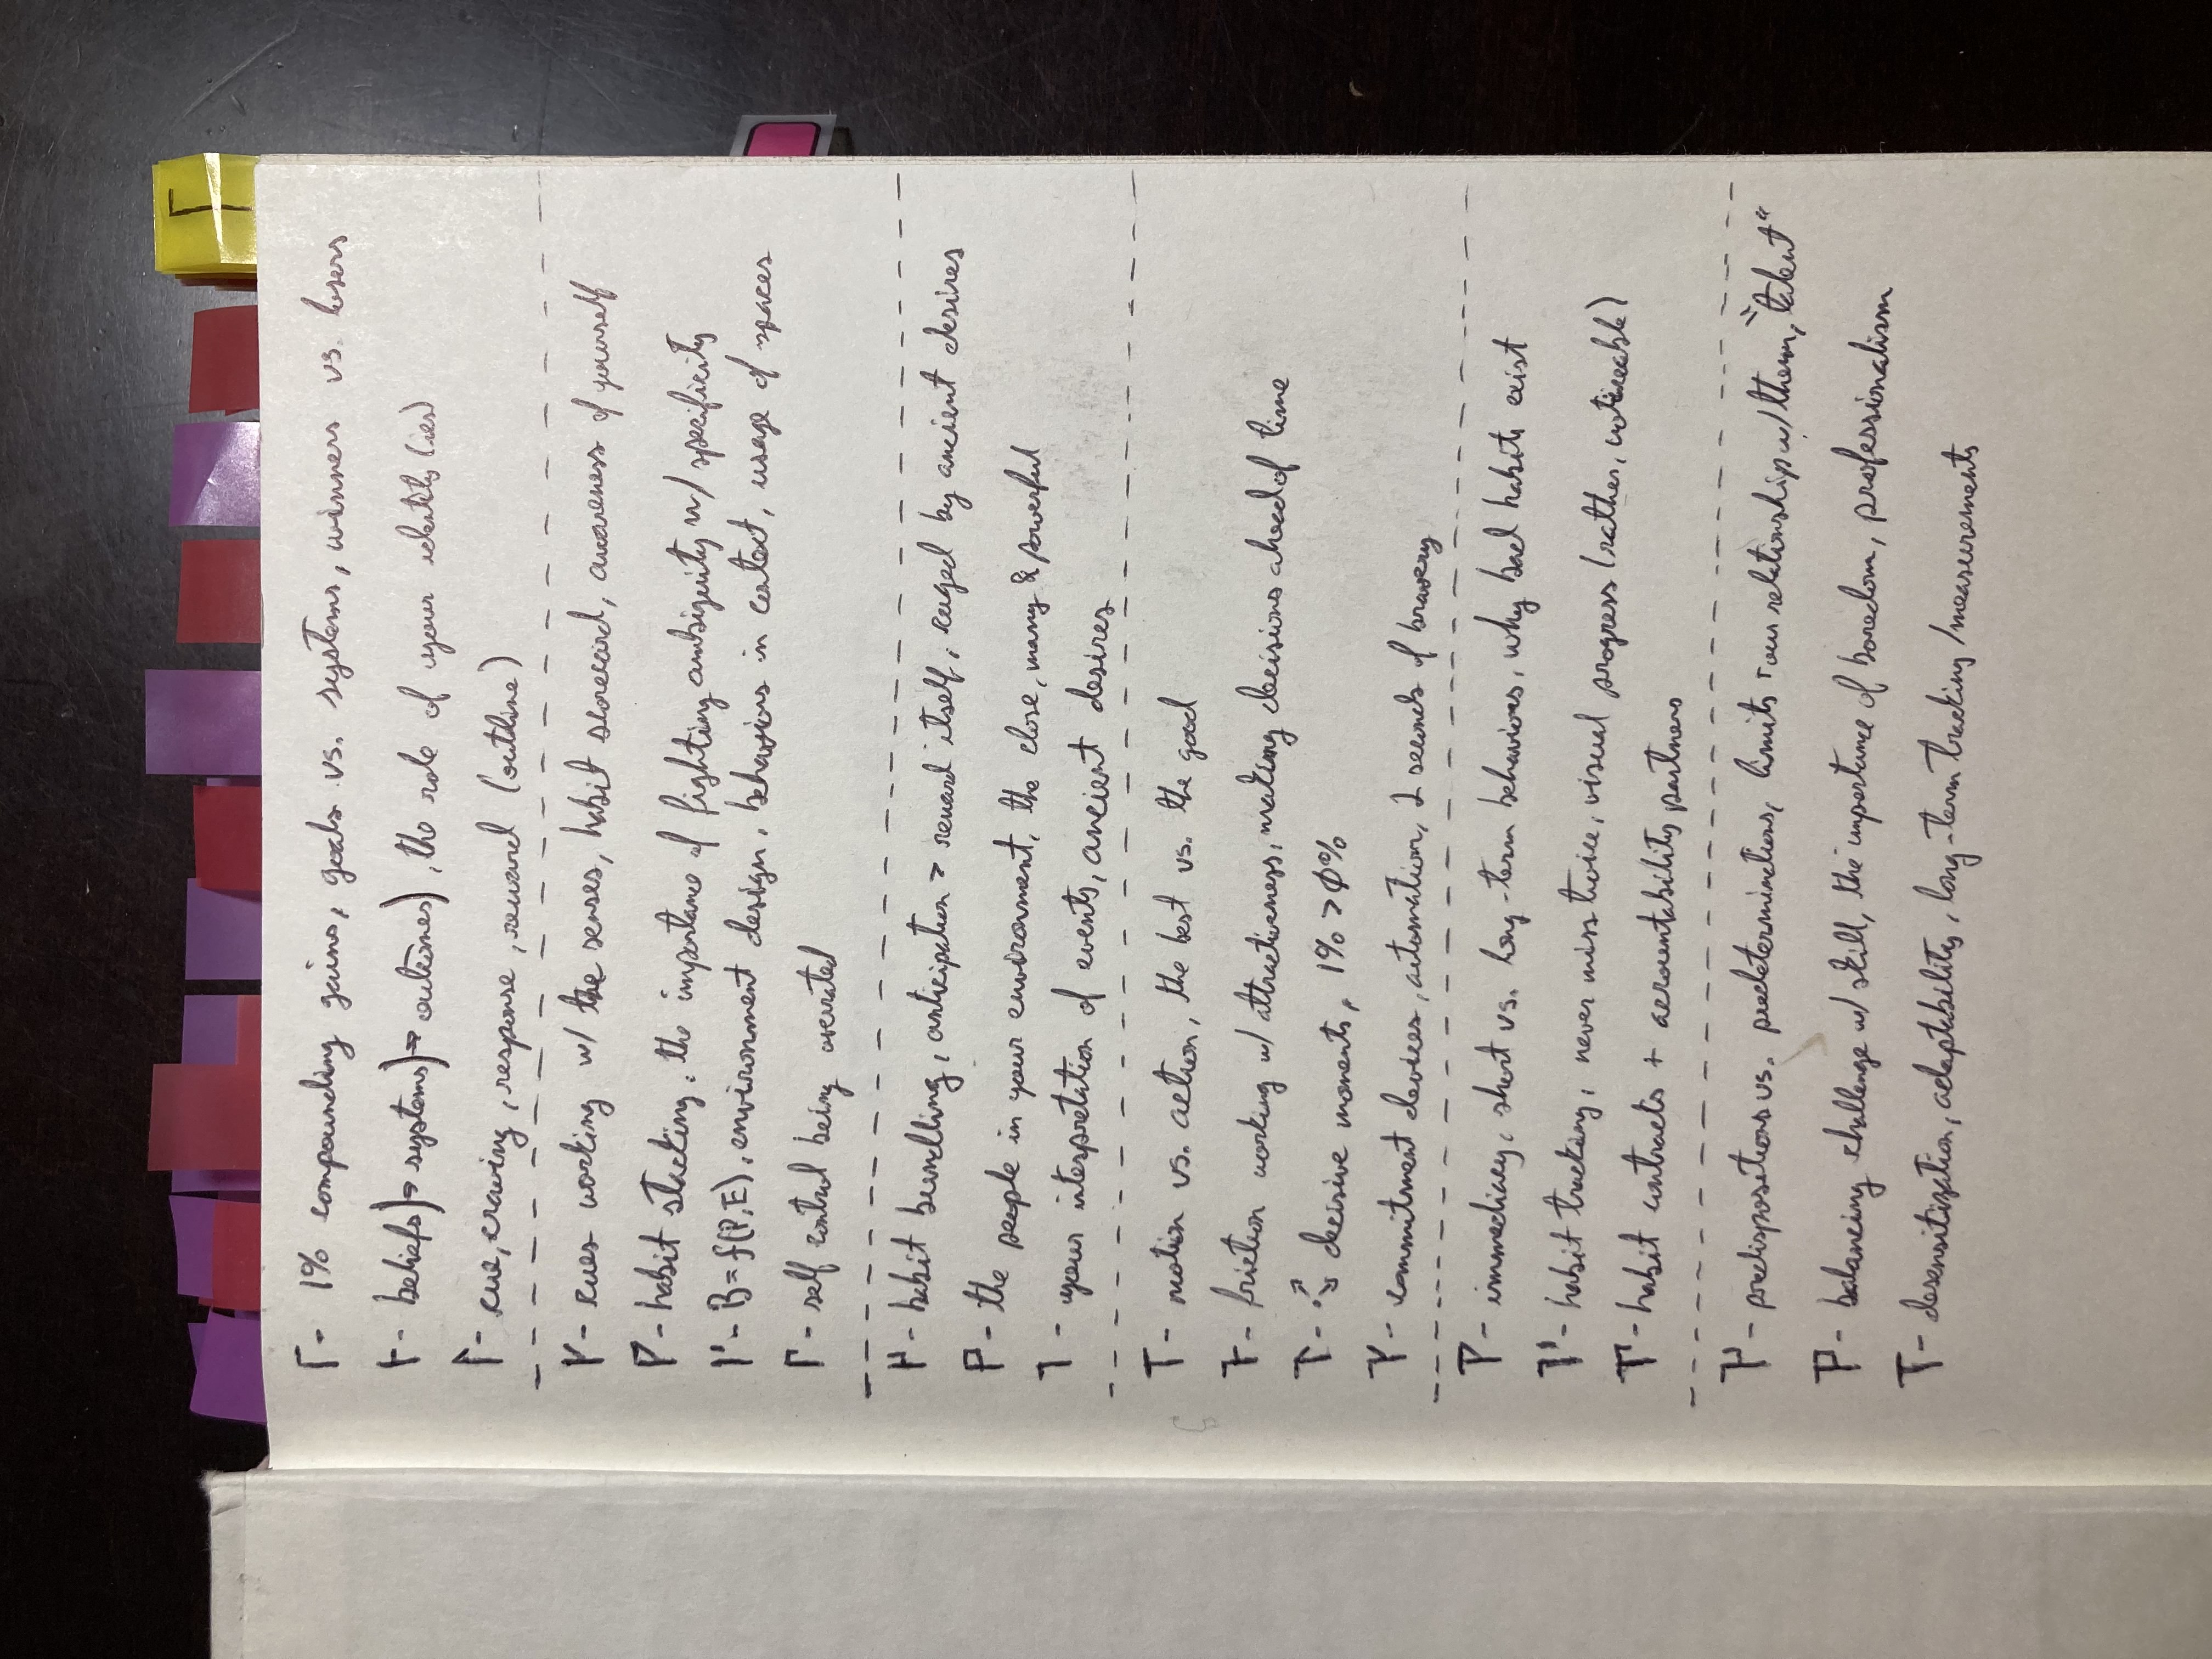 1% compounding gains, goals vs. systems, winners vs. losers
beliefs)→ systems)→ outcomes), the role of your identity (ies)
cue, craving, response, reward (outline)
cues working w/ the senses, habit scorecard, awareness of yourself
habit stacking, the importance of fighting ambiguity w/ specificity
B=f(P,E), environment design, behaviors in context, usage of spaces
self control being overrated
habit bundling, anticipation > reward itself, caged by ancient desires
the people in your environment, the close, many & powerful
your interpretation of events, ancient desires
motion vs. action, the best vs. the good
friction working w/ attractiveness, making decisions ahead of time
decisive moments, 1% > 0%
commitment devices, automation, 2 seconds of bravery
immediacy, short vs. long-term behaviors, why bad habits exist
habit tracking, never miss twice, visual progress (rather, noticeable)
habit contracts + accountability partners
predispositions vs. predeterminations, limits + our relationship w/ them, "talent"
balancing challenge w/ skill, the importance of boredom, professionalism
desensitization, adaptability, long-term tracking/measurements